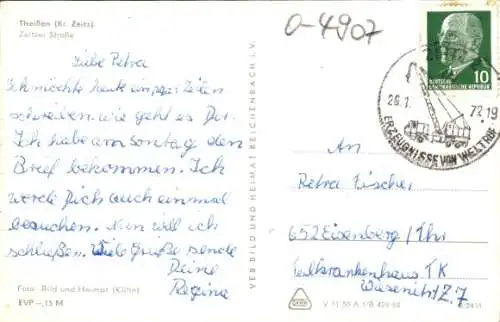 Theißen (Kr. Zeitz)
Zeitzer Straße
Liebe Petra
Ich möchte heute ein paar Zeilen
schreiben. wie geht es Dir.
Ich habe am sonntag den
Brief bekommen. Ich
werde Dich auch einmal
besuchen. Nun will ich
schließen. Viele Grüße sende
Deine
Regina
Foto: Bild und Heimat (Kühn)
EVP -,15 M
VEB BILD UND HEIMAT REICHENBACH i. V.
0-4907
10
DEUTSCHE
DEMOKRATISCHE REPUBLIK
26.1. 72.19
ERZEUGNISSE VON WELTRUF
An
Petra Fischer
652 Eisenberg / Thr
Waldkrankenhaus TK
Z.7
V 11 50 A 1/B